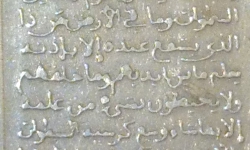 السموات وما في الارض من ذا
الذي يشفع عنده الا باذنه
يعلم ما بين ايديهم وما خلفهم
ولا يحيطون بشيء من علمه
الا بما شاء وسع كرسيه السموات